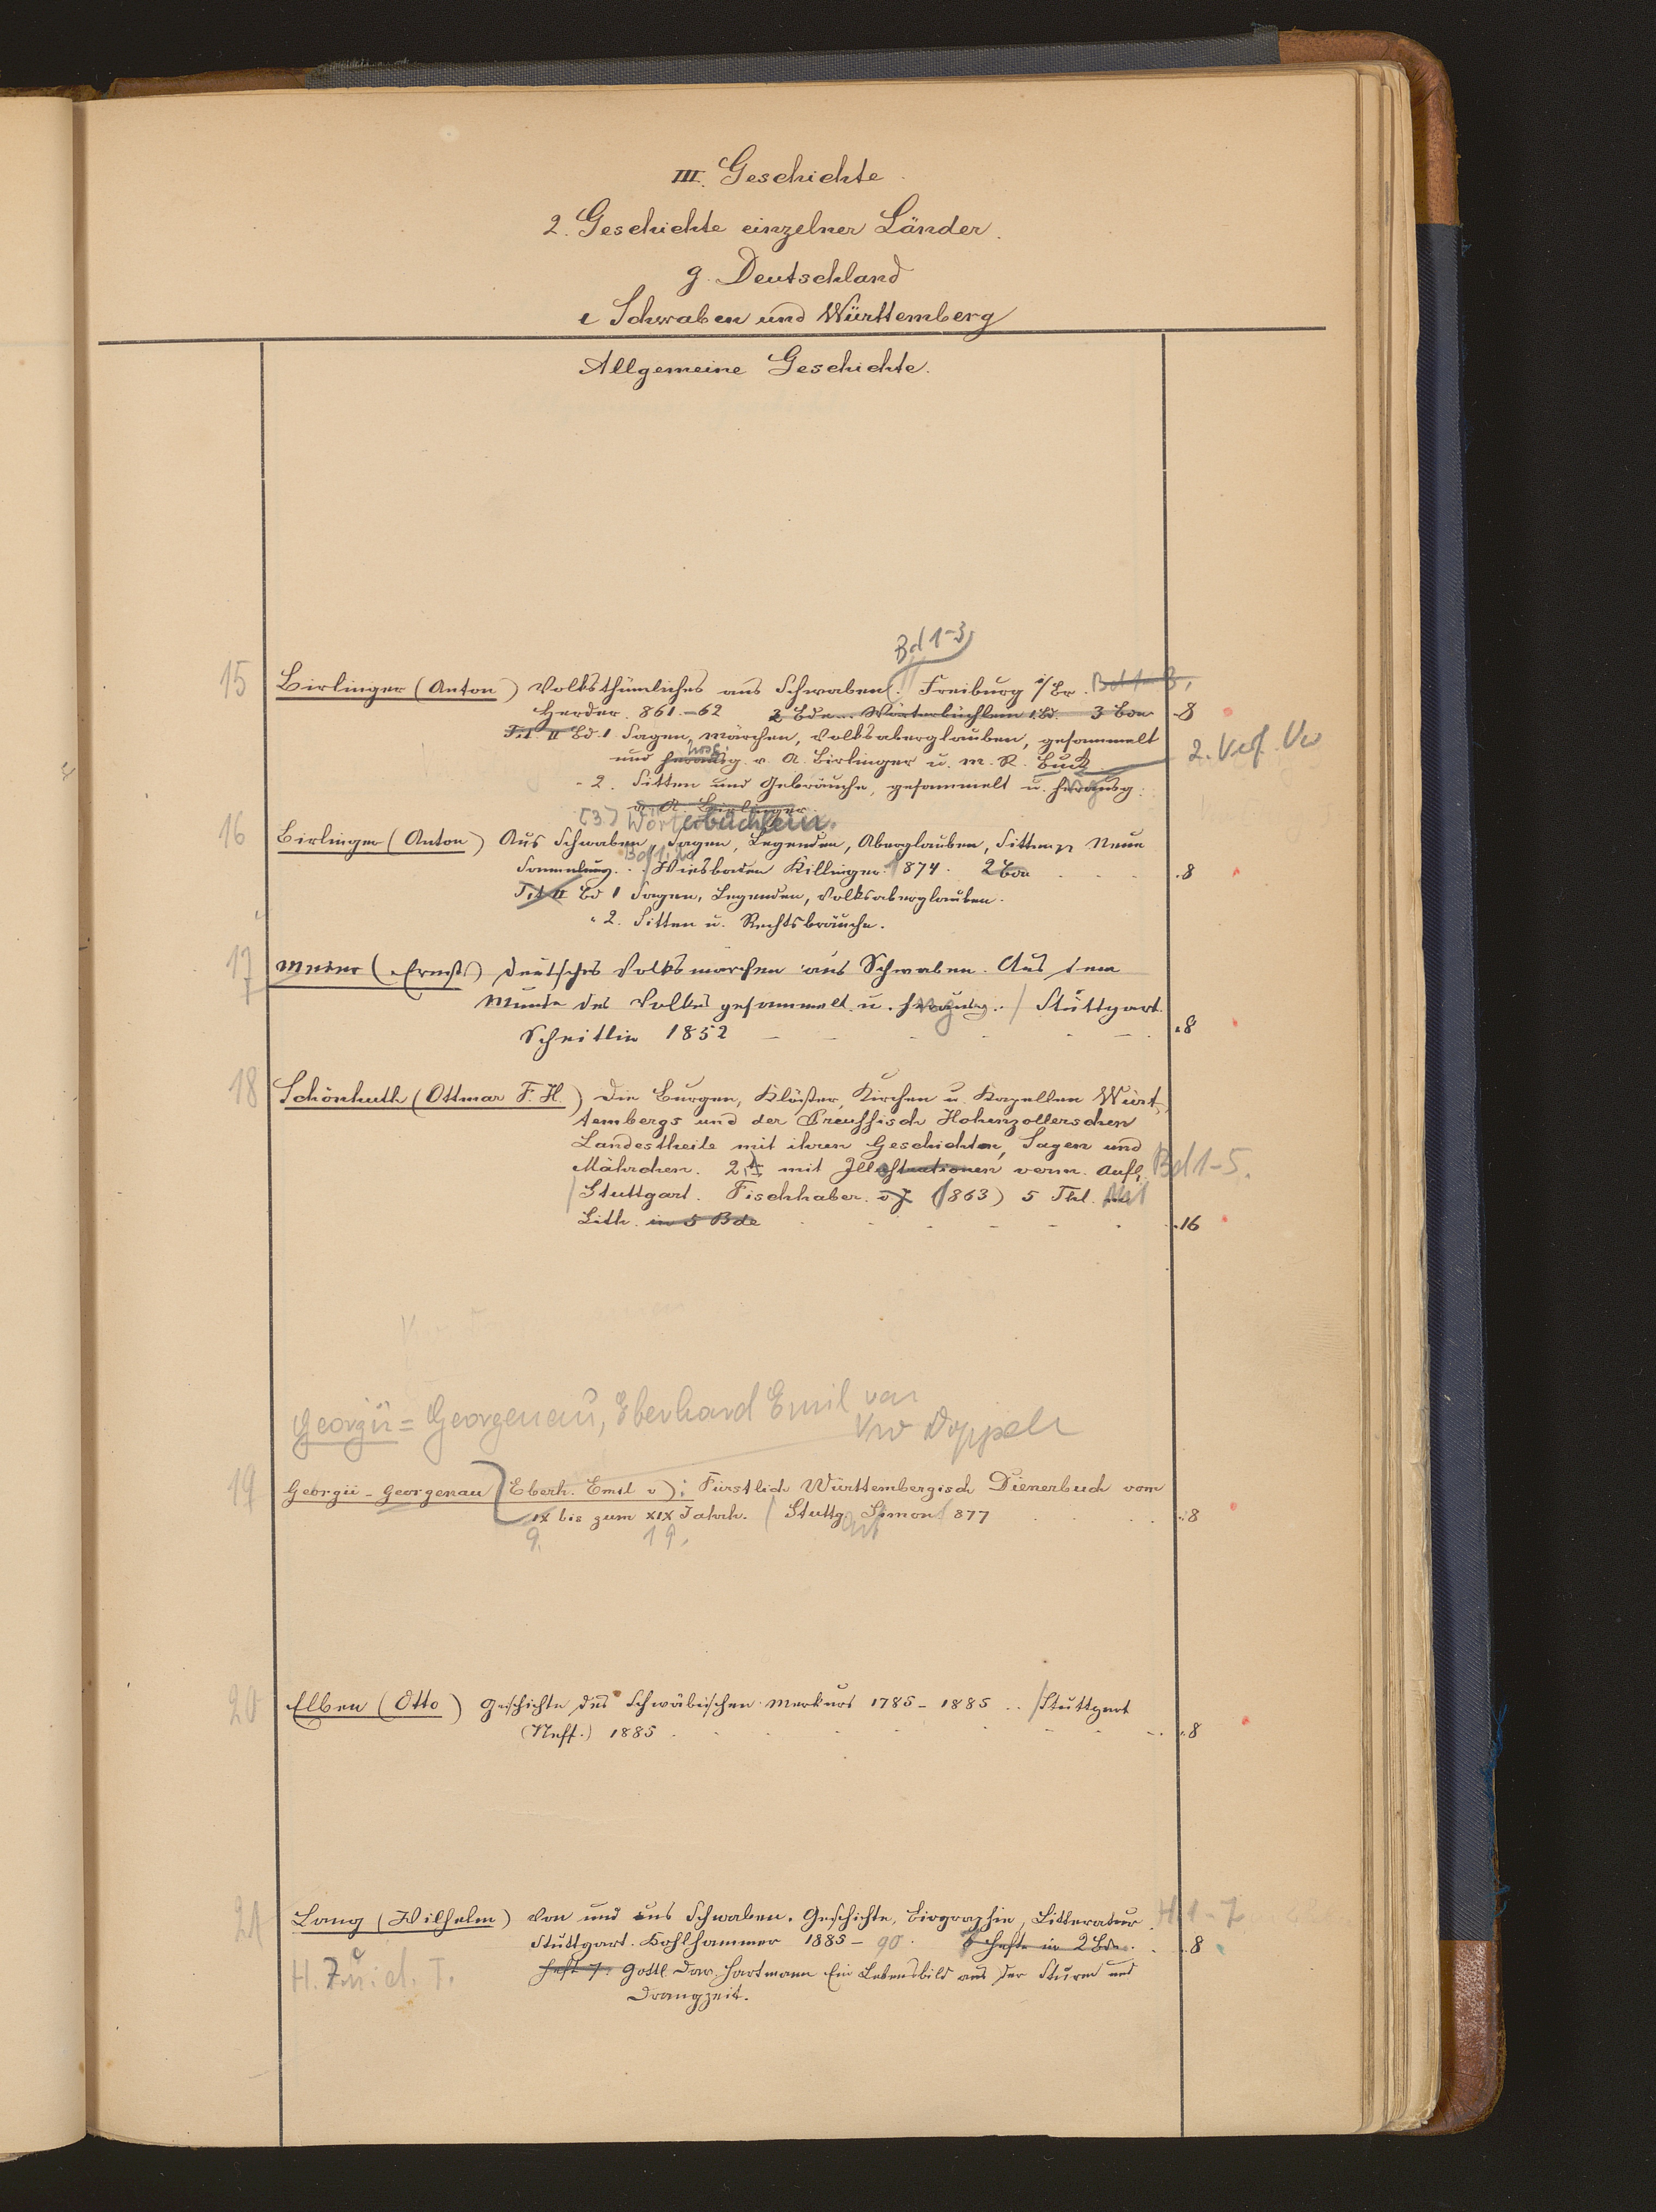 III. Geschichte.
2. Geschichte einzelner Länder.
g. Deutschland
e Schwaben und Württemberg
Allgemeine Geschichte.
Bd 1-3
15 Birlinger (Anton) Volksthümliches aus Schwaben. Freiburg i/Br. Bd 1-3,
Herder. 861.-62 2 Bde... Wörterbüchlein 1 Bd. 3 Bde 8
Tit. II Bd. 1 Sagen, Märchen, Volksaberglauben, gesammelt
und herausg. v. A. Birlinger u. M. R. Buck 2. Verf. Vw
hrsg.
- 2. Sitten und Gebräuche, gesammelt u. herausg.
v. A. Birlinger.
(3) Wörterbüchlein.
16 Birlinger (Anton) Aus Schwaben, Sagen, Legenden, Aberglauben, Sitten pp Neue
Bd 1. 2.
Sammlung. Wiesbaden Killinger. 1874. 2 Bde .8
Tit II Bd 1 Sagen, Legenden, Volksaberglauben.
" 2. Sitten u. Rechtsbräuche.
17 Meier (Ernst) Deutsches Volksmärchen aus Schwaben. Aus dem
Munde des Volkes gesammelt u. herausg. / Stuttgart.
Scheitlin 1852 .8
18 Schönhuth (Ottmar F. H.) Die Burgen, Klöster, Kirchen u. Kapellen Würt-
tembergs und der Preussisch Hohenzollerschen
Landestheile mit ihren Geschichten, Sagen und
Mährchen. 2te mit Illustrationen verm. Aufl. Bd 1-5.
/ Stuttgart. Fischhaber. o J (1863) 5 Thl. Mit
Lith. in 5 Bde .16
Georgii = Georgenau, Eberhard Emil von
Vw Doppelr
19 Georgii - Georgenau (Eberh. Emil v); Fürstlich Württembergisch Dienerbuch vom
IX bis zum XIX Jahrh. / Stuttg. Simon 1877 .8
9. 19. art
20 Elben (Otto) Geschichte des Schwäbischen Merkurs 1785 - 1885 .. / Stuttgart
(Neff.) 1885 .8
21 Lang (Wilhelm) Von und aus Schwaben. Geschichte, Biographie, Litteratur. H. 1-7
Stuttgart. Kohlhammer 1885 - 90. Hefte in 2 Bde. .8
H. 7 u. d. T. Heft 7. Gottl. Dav. Hartmann Ein Lebensbild aus der Sturm und
Drangzeit.